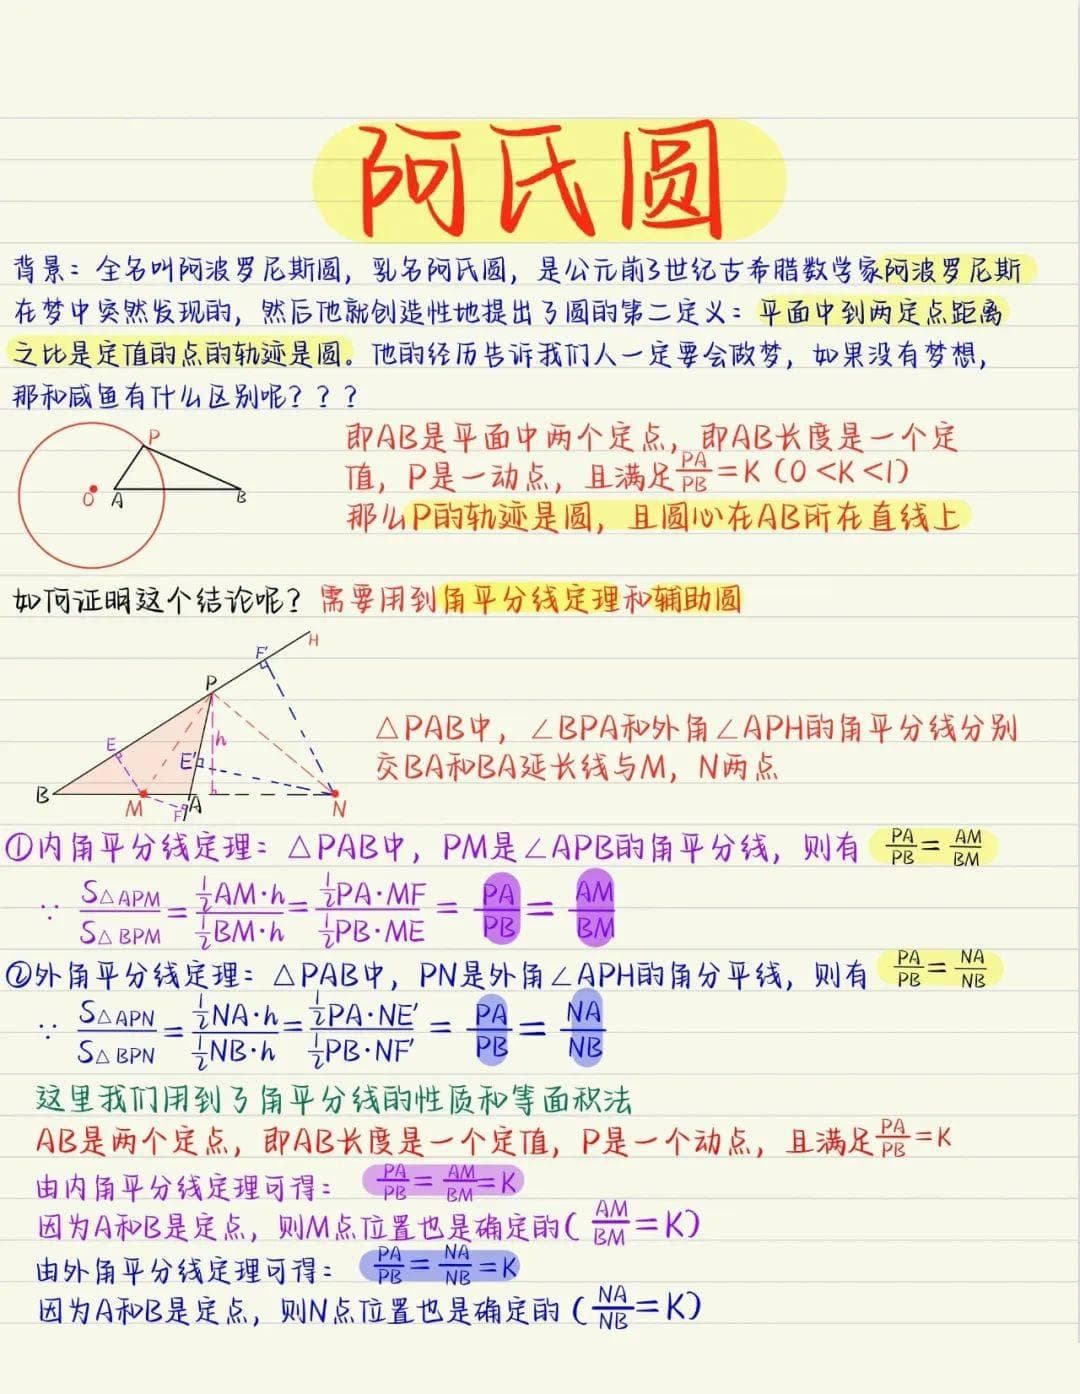 阿氏圆
背景：全名叫阿波罗尼斯圆，乳名阿氏圆，是公元前3世纪古希腊数学家阿波罗尼斯
在梦中突然发现的，然后他就创造性地提出了圆的第二定义：平面中到两定点距离
之比是定值的点的轨迹是圆。他的经历告诉我们人一定要会做梦，如果没有梦想，
那和咸鱼有什么区别呢？？？
P
O A B
即AB是平面中两个定点，即AB长度是一个定
值，P是一动点，且满足PA/PB=K（0<K<1）
那么P的轨迹是圆，且圆心在AB所在直线上
如何证明这个结论呢？需要用到角平分线定理和辅助圆
H
F'
P
E h
E'
B M A N
F
△PAB中，∠BPA和外角∠APH的角平分线分别
交BA和BA延长线与M，N两点
①内角平分线定理：△PAB中，PM是∠APB的角平分线，则有 PA/PB=AM/BM
∵ S△APM/S△BPM=½AM·h/½BM·h=½PA·MF/½PB·ME=PA/PB=AM/BM
②外角平分线定理：△PAB中，PN是外角∠APH的角分平线，则有 PA/PB=NA/NB
∵ S△APN/S△BPN=½NA·h/½NB·h=½PA·NE'/½PB·NF'=PA/PB=NA/NB
这里我们用到了角平分线的性质和等面积法
AB是两个定点，即AB长度是一个定值，P是一个动点，且满足PA/PB=K
由内角平分线定理可得： PA/PB=AM/BM=K
因为A和B是定点，则M点位置也是确定的（AM/BM=K）
由外角平分线定理可得： PA/PB=NA/NB=K
因为A和B是定点，则N点位置也是确定的（NA/NB=K）